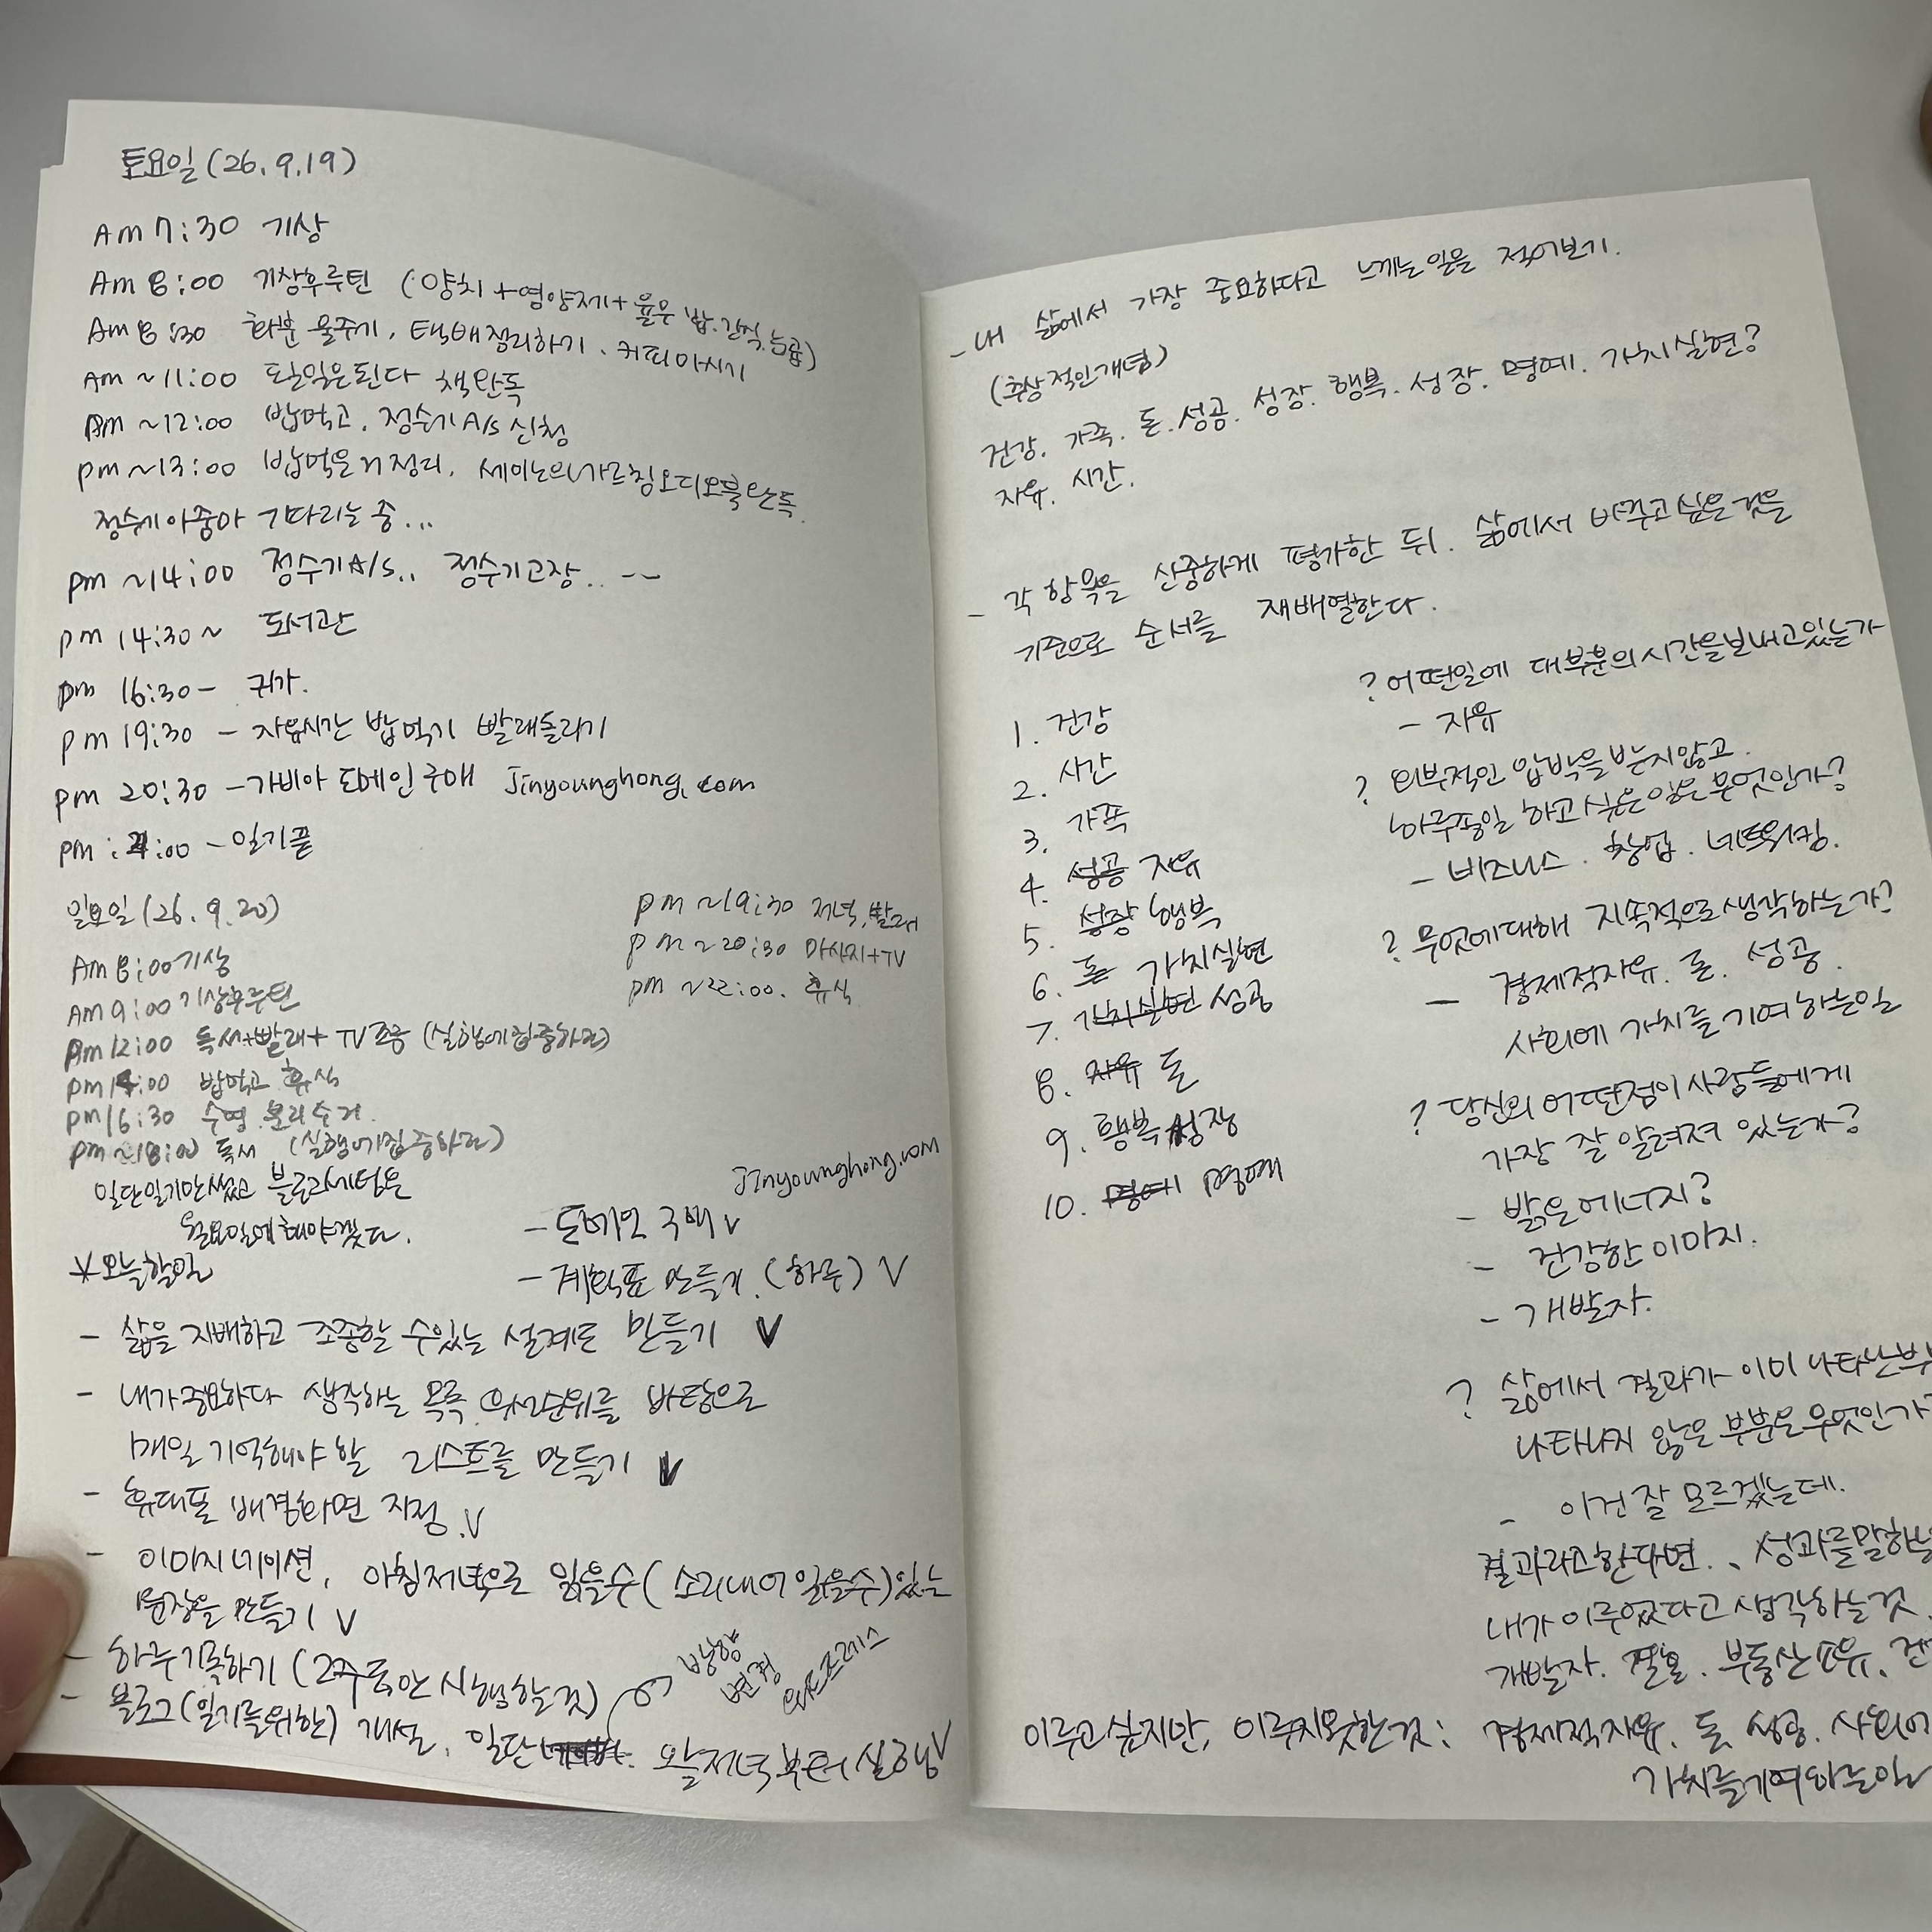 토요일(26.9.19)
Am 7:30 기상
Am 8:00 기상후루틴 (양치+영양제+율무 밥.간식.농콜)
Am 8:30 화분 물주기, 택배정리하기. 커피마시기
Am ~11:00 될일은된다 책완독
Am ~12:00 밥먹고, 정수기A/s 신청
pm ~13:00 밥먹은거정리, 세이노의가르침오디오북완독.
정수기아줌마 기다리는 중...
pm ~14:00 정수기A/s.. 정수기고장.. --
pm 14:30~ 도서관
pm 16:30- 귀가.
pm 19:30 - 자유시간 밥먹기 빨래돌리기
pm 20:30 -가비아 도메인구매 Jinyounghong.com
pm :21:00 -일기끝
일요일(26.9.20)
Am 8:00기상
Am 9:00 기상후루틴
Am 12:00 독서+빨래+TV조금 (실행에집중하라)
pm 14:00 밥먹고 휴식
pm 16:30 수영.분리수거.
pm ~18:00 독서 (실행에집중하라)
pm ~19:30 저녁,빨래
pm ~20:30 마사지+TV
pm ~22:00. 휴식
일단일기만썼고 블로그세팅은
월요일에해야겠다.
Jinyounghong.com
- 도메인 구매 v
- 계획표 만들기.(하루) V
오늘할일
- 삶을 지배하고 조종할 수있는 설계도 만들기 V
- 내가중요하다 생각하는 목록 우선순위를 바탕으로
매일 기억해야 할 리스트를 만들기 V
- 휴대폰 배경화면 지정.V
- 이미지네이션, 아침저녁으로 읽을수(소리내어읽을수)있는
문장을 만들기 V
- 하루기록하기 (2주동안시행할것)
- 블로그(일기를위한) 개설. 일단 오늘저녁부터실행V
방향
변경
워드프레스
- 내 삶에서 가장 중요하다고 느끼는일을 적어보기.
(추상적인개념)
건강. 가족. 돈.성공.성장.행복.성장.명예.가치실현?
자유. 시간.
- 각 항목을 신중하게 평가한 뒤. 삶에서 바꾸고싶은것을
기준으로 순서를 재배열한다.
1. 건강
2. 시간
3. 가족
4. 성공 자유
5. 성장 행복
6. 돈 가치실현
7. 가치실현 성공
8. 자유 돈
9. 행복 성장
10. 명예 명예
? 어떤일에 대부분의시간을보내고있는가
- 자유
? 외부적인 압박을받지않고.
하루종일 하고싶은일은무엇인가?
- 비즈니스. 창업. 네트워킹.
? 무엇에대해 지속적으로생각하는가?
- 경제적자유. 돈. 성공.
사회에 가치를기여하는일
? 당신의어떤점이사람들에게
가장 잘 알려져 있는가?
- 밝은에너지?
- 건강한이미지.
- 개발자.
? 삶에서 결과가 이미나타난
나타나지 않은 부분은무엇인가
- 이건 잘 모르겠는데.
결과라고한다면.. 성과를말하는
내가이루었다고생각하는것.
개발자. 결혼. 부동산소유.
이루고싶지만, 이루지못한것: 경제적자유. 돈. 성공. 사회에
가치를기여하는일